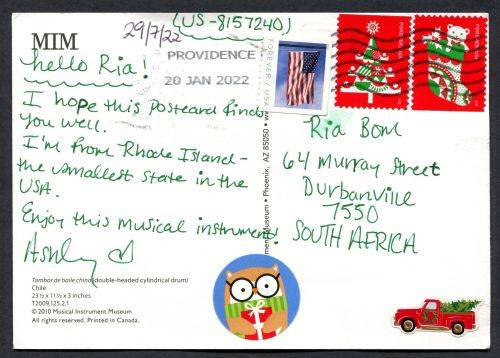 (US-8157240)
29/7/22
MIM
PROVIDENCE
20 JAN 2022
FOREVER / USA
hello Ria!
I hope this Postcard finds
you well.
I'm from Rhode Island -
the smallest state in the
USA.
Enjoy this musical instrument!
Ashley ♡
Ria Bom
64 Murray Street
Durbanville
7550
SOUTH AFRICA
Museum • Phoenix, AZ 85050 •
Tambor de baile chino (double-headed cylindrical drum)
Chile
23 ½ x 11 ½ x 3 inches
T2009.125.2.1
© 2010 Musical Instrument Museum
All rights reserved. Printed in Canada.